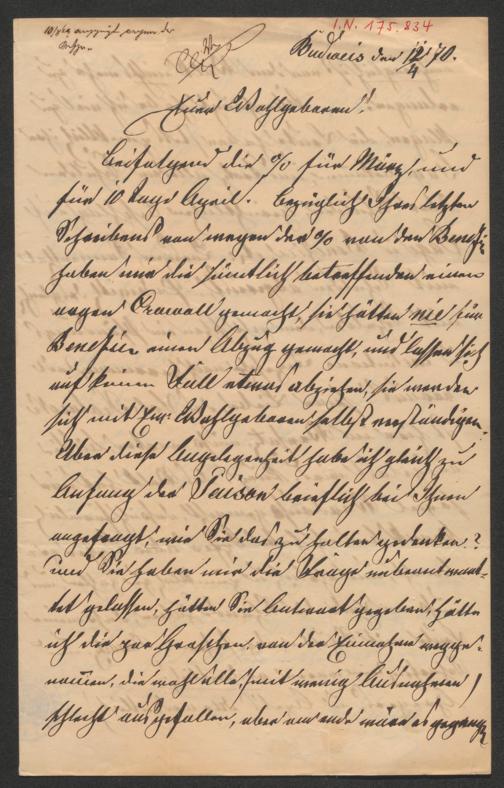 I.N. 175.834
Budweis den 12/4 70.
Euer Wohlgeboren!
Beifolgend die % für März, und
für 10 Tage April. Bezüglich Ihres letzten
Schreibens von wegen der % von den Benefi-
haben mir die sämtlich betreffenden einen
argen Crawall gemacht, sie hätten nie für
Benefice einen Abzug gemacht, und lassen sich
auf keinen Fall etwas abziehen, sie werden
sich mit Euer Wohlgeboren selbst verständigen.
Über diese Angelegenheit habe ich gleich zu
Anfang der Saison brieflich bei Ihnen
angefragt, wie Sie das zu halten gedenken?
und Sie haben mir die Frage unbeantwor-
tet gelassen, hätten Sie Antwort gegeben, hätte
ich die par Groschen, von den Einnahmen wegge-
nomen, die wohl alle, (mit wenig Ausnahmen)
schlecht ausgefallen, aber am ende wäre es gegangen